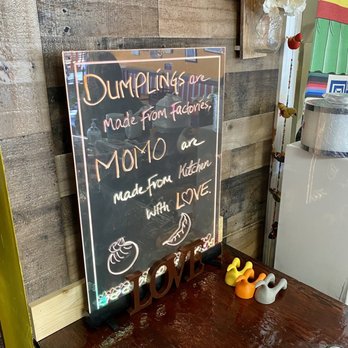 DUMPLINGS are
made from factories,
MOMO are
made from kitchen
with LOVE.
LOVE